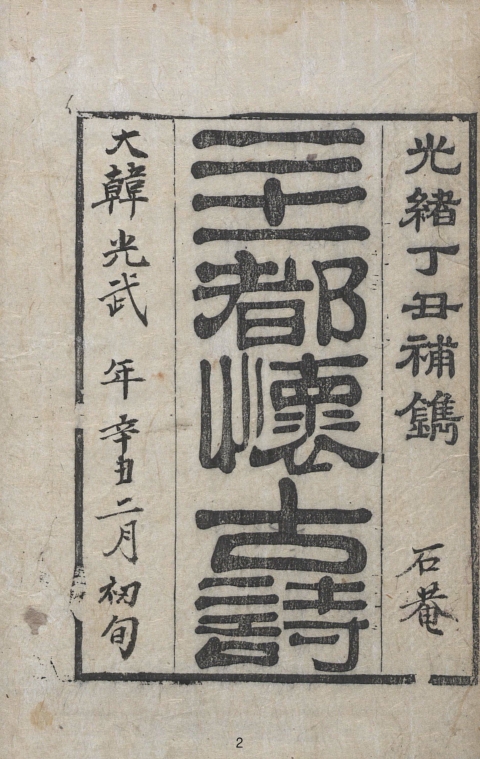 光緒丁丑補鐫 石菴
二十一都懷古詩
大韓光武 年辛丑二月初旬
2